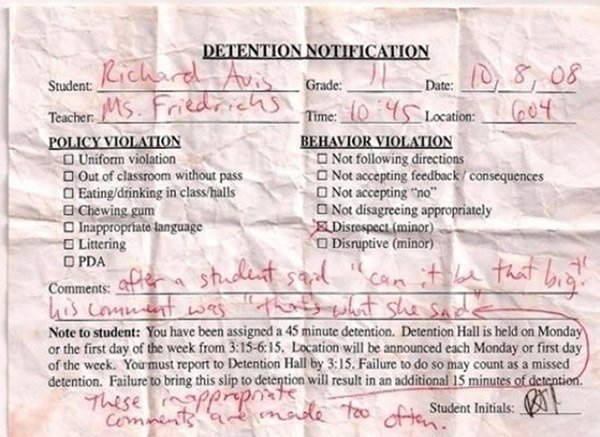 DETENTION NOTIFICATION
Student: Richard Avis Grade: 11 Date: 10, 8, 08
Teacher: Ms. Friedrichs Time: 10:45 Location: 604
POLICY VIOLATION
☐ Uniform violation
☐ Out of classroom without pass
☐ Eating/drinking in class/halls
☐ Chewing gum
☐ Inappropriate language
☐ Littering
☐ PDA
BEHAVIOR VIOLATION
☐ Not following directions
☐ Not accepting feedback / consequences
☐ Not accepting "no"
☐ Not disagreeing appropriately
☒ Disrespect (minor)
☐ Disruptive (minor)
Comments: after a student said "can it be that big?"
his comment was "that's what she said"
Note to student: You have been assigned a 45 minute detention. Detention Hall is held on Monday
or the first day of the week from 3:15-6:15. Location will be announced each Monday or first day
of the week. You must report to Detention Hall by 3:15. Failure to do so may count as a missed
detention. Failure to bring this slip to detention will result in an additional 15 minutes of detention.
These inappropriate
comments are made too often.
Student Initials: